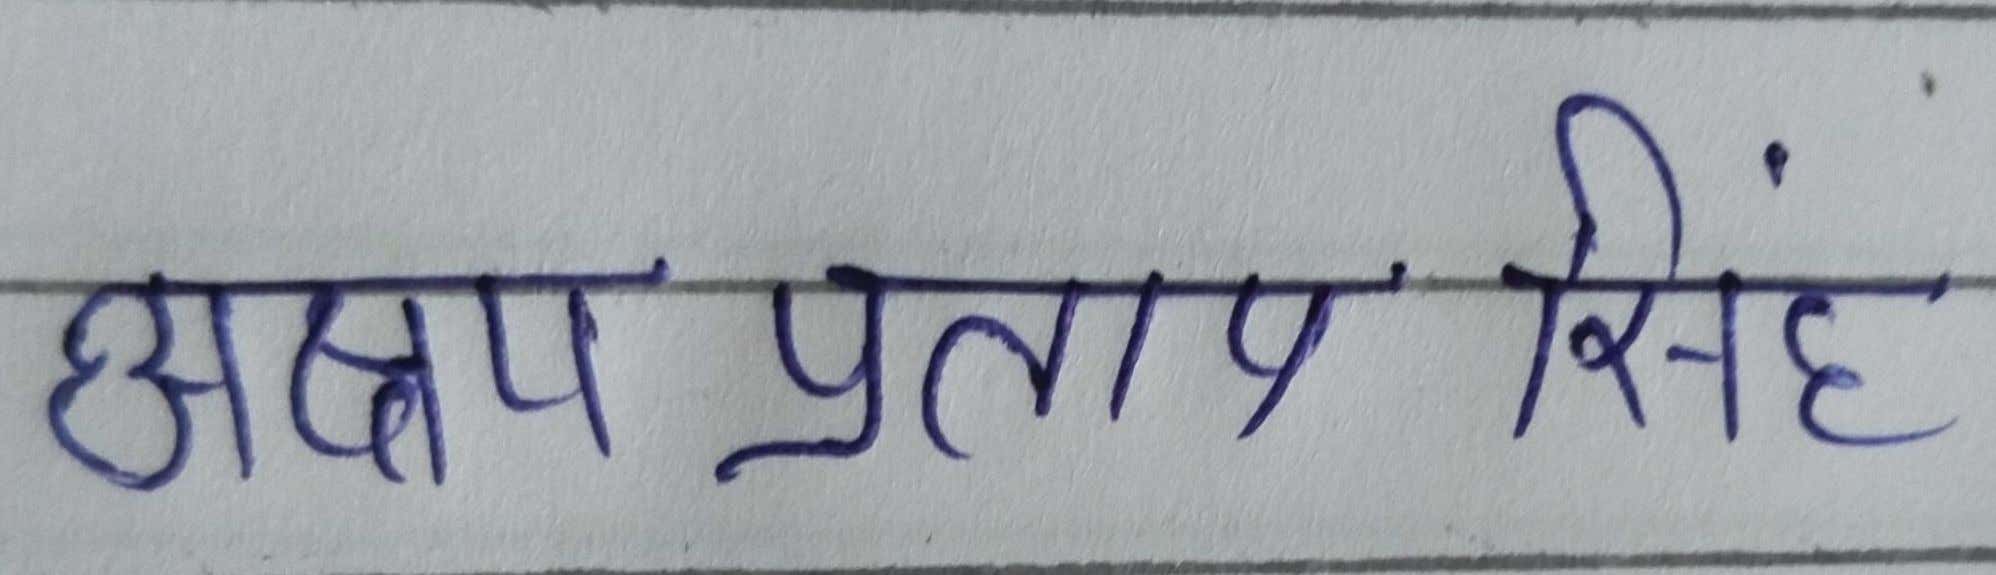 अक्षप प्रताप सिंह